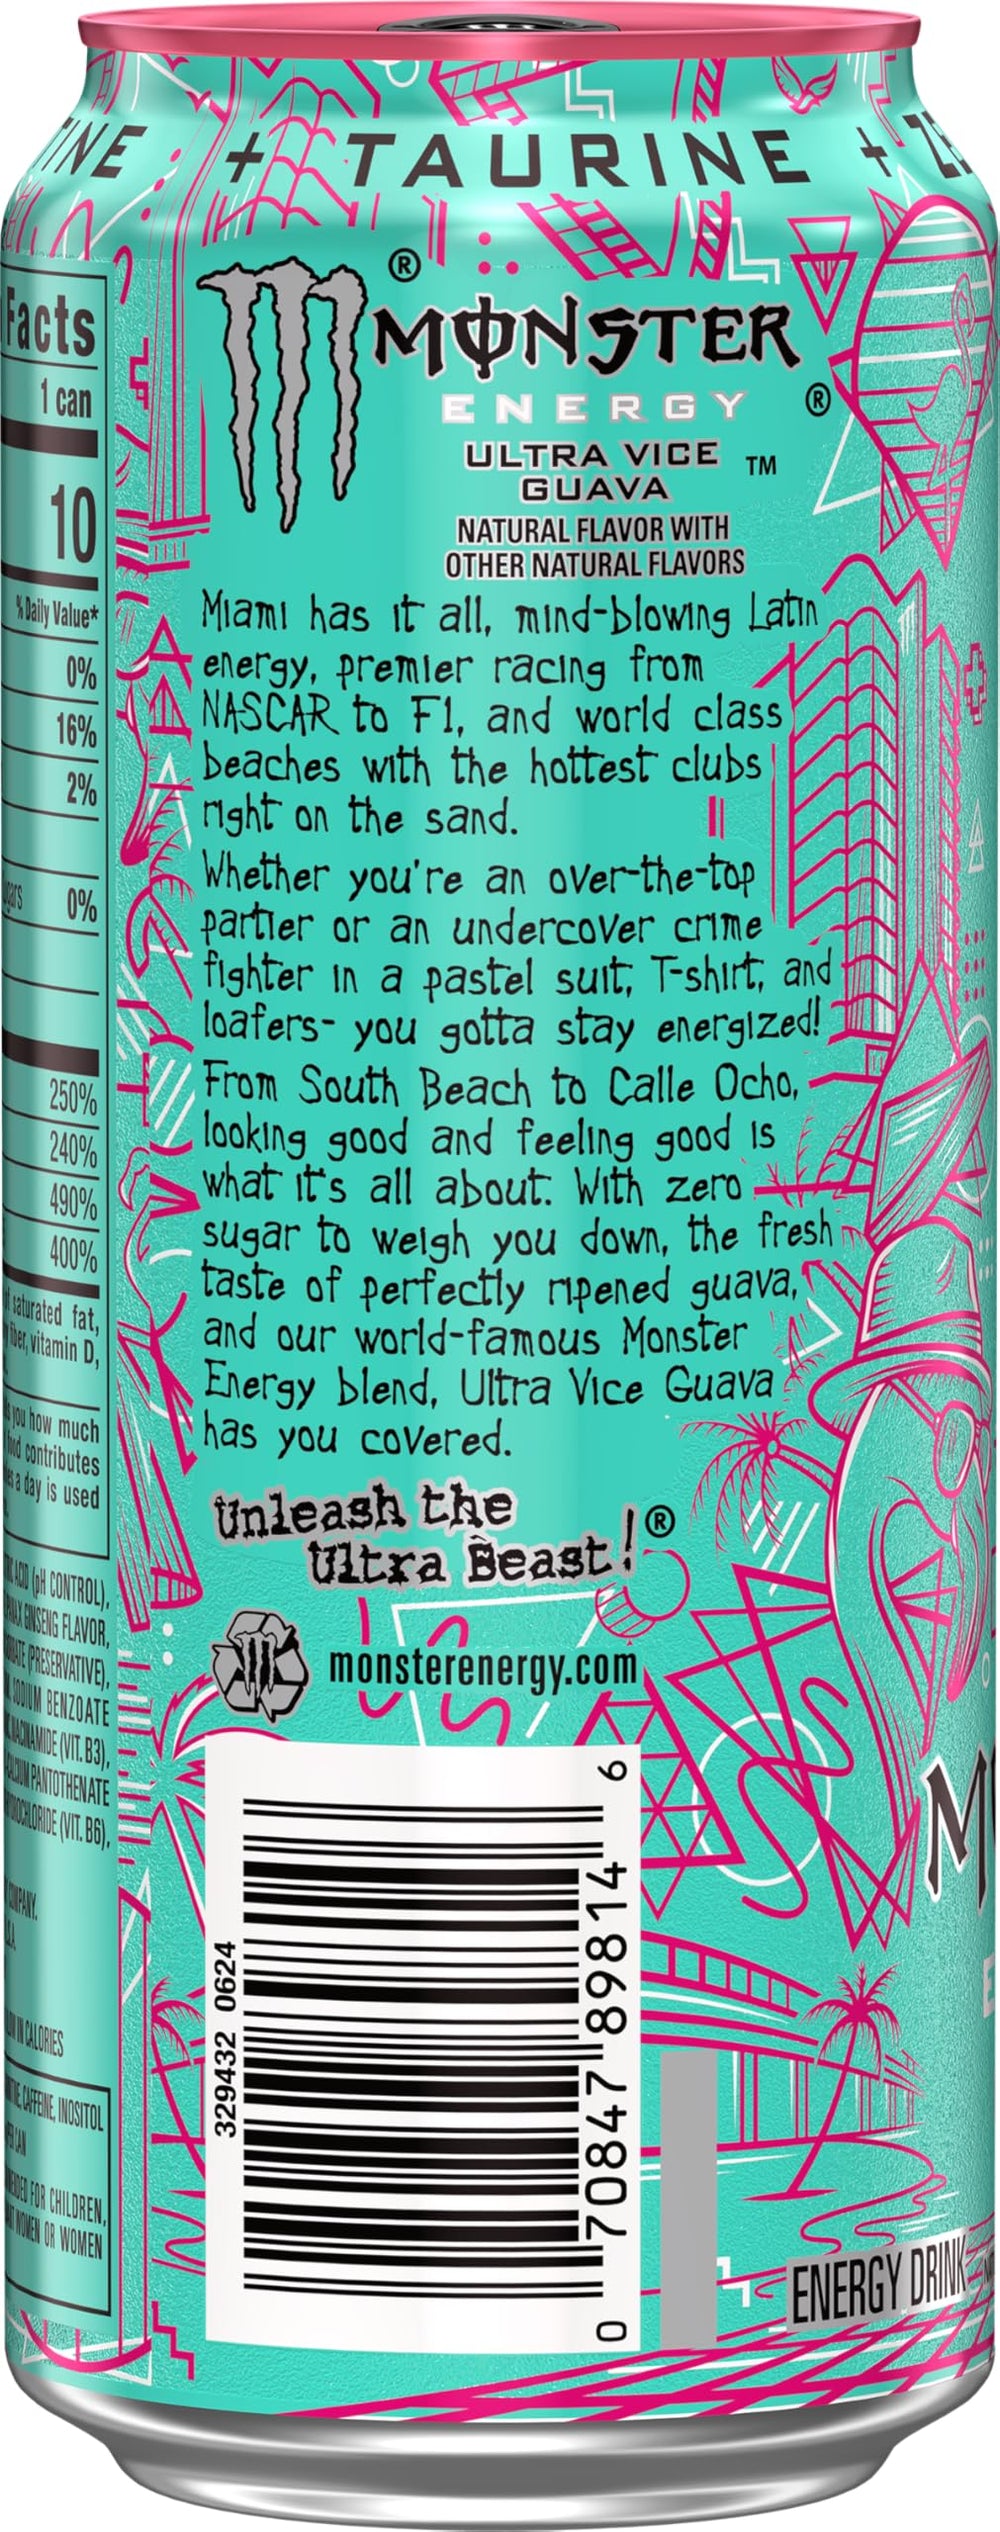 + TAURINE +
Facts
1 can
10
% Daily Value*
0%
16%
2%
0%
250%
240%
490%
400%
saturated fat,
fiber, vitamin D,
you how much
food contributes
a day is used
ACID (pH CONTROL),
PANAX GINSENG FLAVOR,
(PRESERVATIVE),
SODIUM BENZOATE
NIACINAMIDE (VIT. B3),
CALCIUM PANTOTHENATE
(VIT. B6),
COMPANY.
LOW IN CALORIES
CAFFEINE, INOSITOL
PER CAN
FOR CHILDREN,
WOMEN OR WOMEN
®
MONSTER
ENERGY ®
ULTRA VICE ™
GUAVA
NATURAL FLAVOR WITH
OTHER NATURAL FLAVORS
Miami has it all, mind-blowing Latin
energy, premier racing from
NASCAR to F1, and world class
beaches with the hottest clubs
right on the sand.
Whether you're an over-the-top
partier or an undercover crime
fighter in a pastel suit, T-shirt, and
loafers- you gotta stay energized!
From South Beach to Calle Ocho,
looking good and feeling good is
what it's all about. With zero
sugar to weigh you down, the fresh
taste of perfectly ripened guava,
and our world-famous Monster
Energy blend, Ultra Vice Guava
has you covered.
Unleash the
Ultra Beast! ®
monsterenergy.com
329432 0624
0 70847 89814 6
ENERGY DRINK